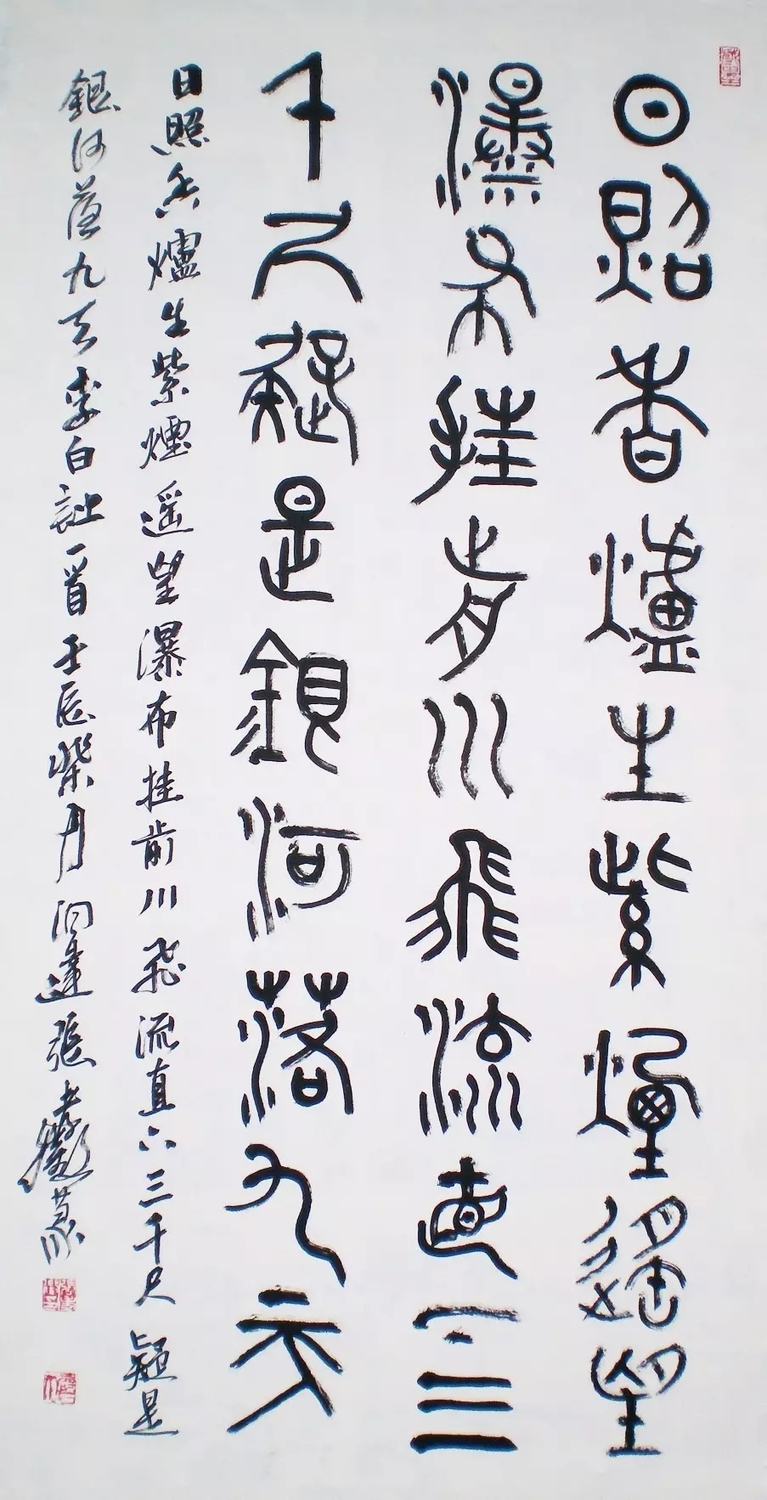 日照香爐生紫煙遙望
瀑布挂前川飛流直下三
千尺疑是銀河落九天
日照香爐生紫煙遥望瀑布挂前川飛流直下三千尺疑是
銀河落九天李白詩一首壬辰柒月問達張孝徽篆